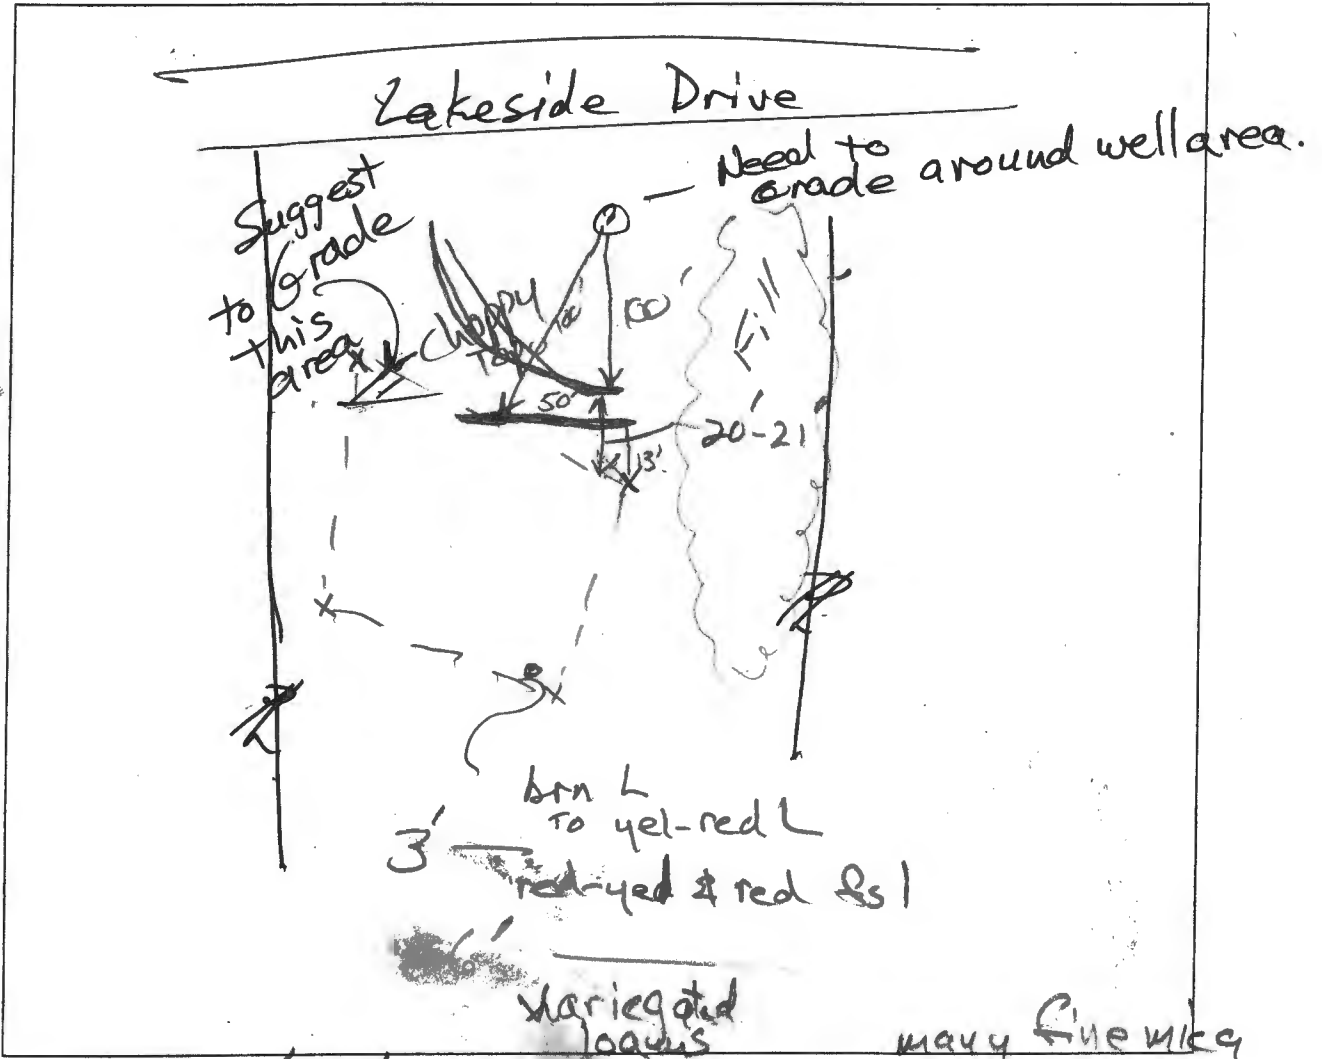 Lakeside Drive
Need to
grade around well area.
Suggest
to Grade
this
area
choppy
Topo
100'
100'
Fill
50'
20'-21'
13'
brn L
To yel-red L
3'
red-yed & red fsl
6'
Variegated
loams
many fine mica